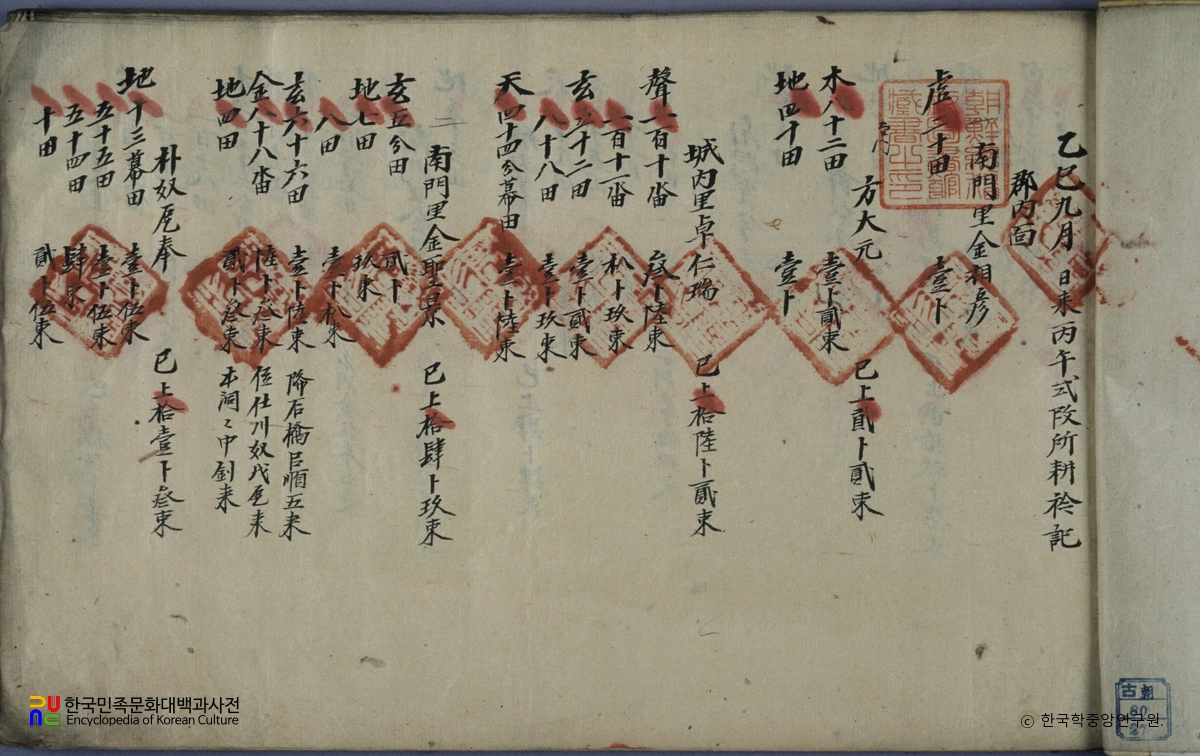 乙巳九月 日来丙午式改所耕衿記
郡内面
南門里金相彦
虚二十田 壹卜
方大元 已上貳卜貳束
木八十二田 壹卜貳束
地四十田 壹卜
城内里卓仁瑞 已上拾陸卜貳束
聲一百十畓 叁卜陸束
一百十一畓 捌卜玖束
玄三十二田 壹卜貳束
八十八田 壹卜玖束
天四十四分幕田 壹卜陸束
二
南門里金聖 已上拾肆卜玖束
玄五分田 貳卜
地七田 玖束
八田 壹卜
玄六十六田 壹卜陸束 降石橋 五来
金八十八畓 陸卜叁束 伍仕川奴 来
地四田 貳卜叁束 本洞 中 来
朴奴 奉 已上拾壹卜叁束
地十三幕田 壹卜伍束
五十五田 壹卜伍束
五十四田 肆束
十田 貳卜伍束
한국민족문화대백과사전
Encyclopedia of Korean Culture
© 한국학중앙연구원
古朝
80